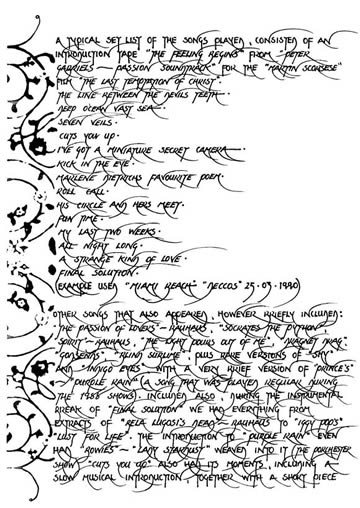 A TYPICAL SET LIST OF THE SONGS PLAYED, CONSISTED OF AN
INTRODUCTION TAPE "THE FEELING BEGINS" FROM "PETER
GABRIELS - PASSION SOUNDTRACK" FOR THE "MARTIN SCORSESE"
FILM "THE LAST TEMPTATION OF CHRIST".
THE LINE BETWEEN THE DEVILS TEETH.
DEEP OCEAN VAST SEA.
SEVEN VEILS.
CUTS YOU UP.
I'VE GOT A MINIATURE SECRET CAMERA.
KICK IN THE EYE.
MARLENE DIETRICHS FAVOURITE POEM.
ROLL CALL.
HIS CIRCLE AND HERS MEET.
FUN TIME.
MY LAST TWO WEEKS.
ALL NIGHT LONG.
A STRANGE KIND OF LOVE.
FINAL SOLUTION.
(EXAMPLE USED "MIAMI BEACH" "DECCOS" 25.03.1990)
OTHER SONGS THAT ALSO APPEARED, HOWEVER BRIEFLY INCLUDED:
"THE PASSION OF LOVERS" - BAUHAUS, "SOCRATES THE PYTHON"
"SPIRIT" - BAUHAUS, "THE LIGHT POURS OUT OF ME", "DRAGNET DRAG"
"GODSENDS" "BLIND SUBLIME", PLUS RARE VERSIONS OF "SHY"
AND "INDIGO EYES" WITH A VERY BRIEF VERSION OF PRINCE'S
- "PURPLE RAIN" (A SONG THAT WAS PLAYED REGULAR DURING
THE 1988 SHOWS). INCLUDED ALSO, DURING THE INSTRUMENTAL
BREAK OF "FINAL SOLUTION" WE HAD EVERYTHING FROM
EXTRACTS OF "BELA LUGOSI'S DEAD - BAUHAUS TO "IGGY POPS"
"LUST FOR LIFE". THE INTRODUCTION TO "PURPLE RAIN" EVEN
HAD "BOWIES" - "LADY STARDUST" WEAVED INTO IT (THE DORCHESTER
SHOW) "CUTS YOU UP" ALSO HAD ITS MOMENTS, INCLUDING A
SLOW MUSICAL INTRODUCTION TOGETHER WITH A SHORT PIECE